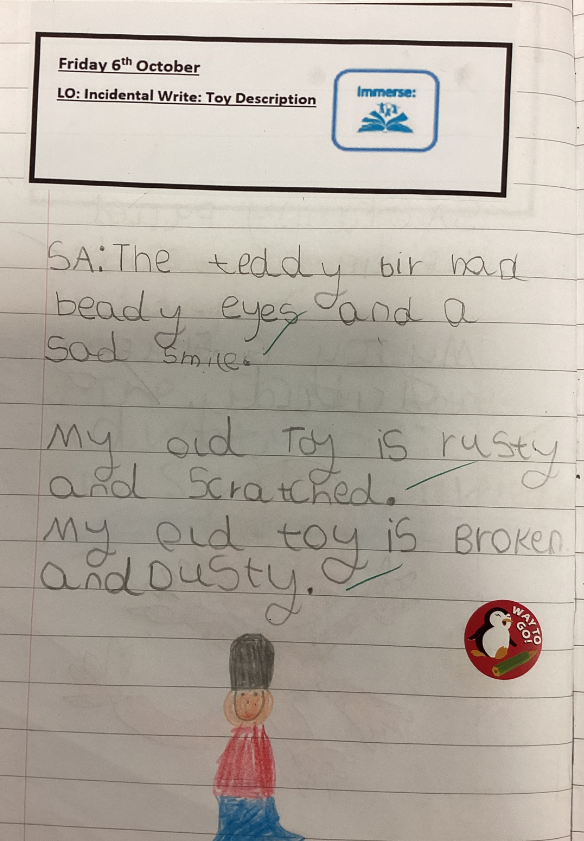 Friday 6th October
LO: Incidental Write: Toy Description
Immerse:
SA: The teddy bir had
beady eyes and a
sad smile.
My old Toy is rusty
and Scratched.
My old toy is Broken
and Dusty.
WAY TO
GO!